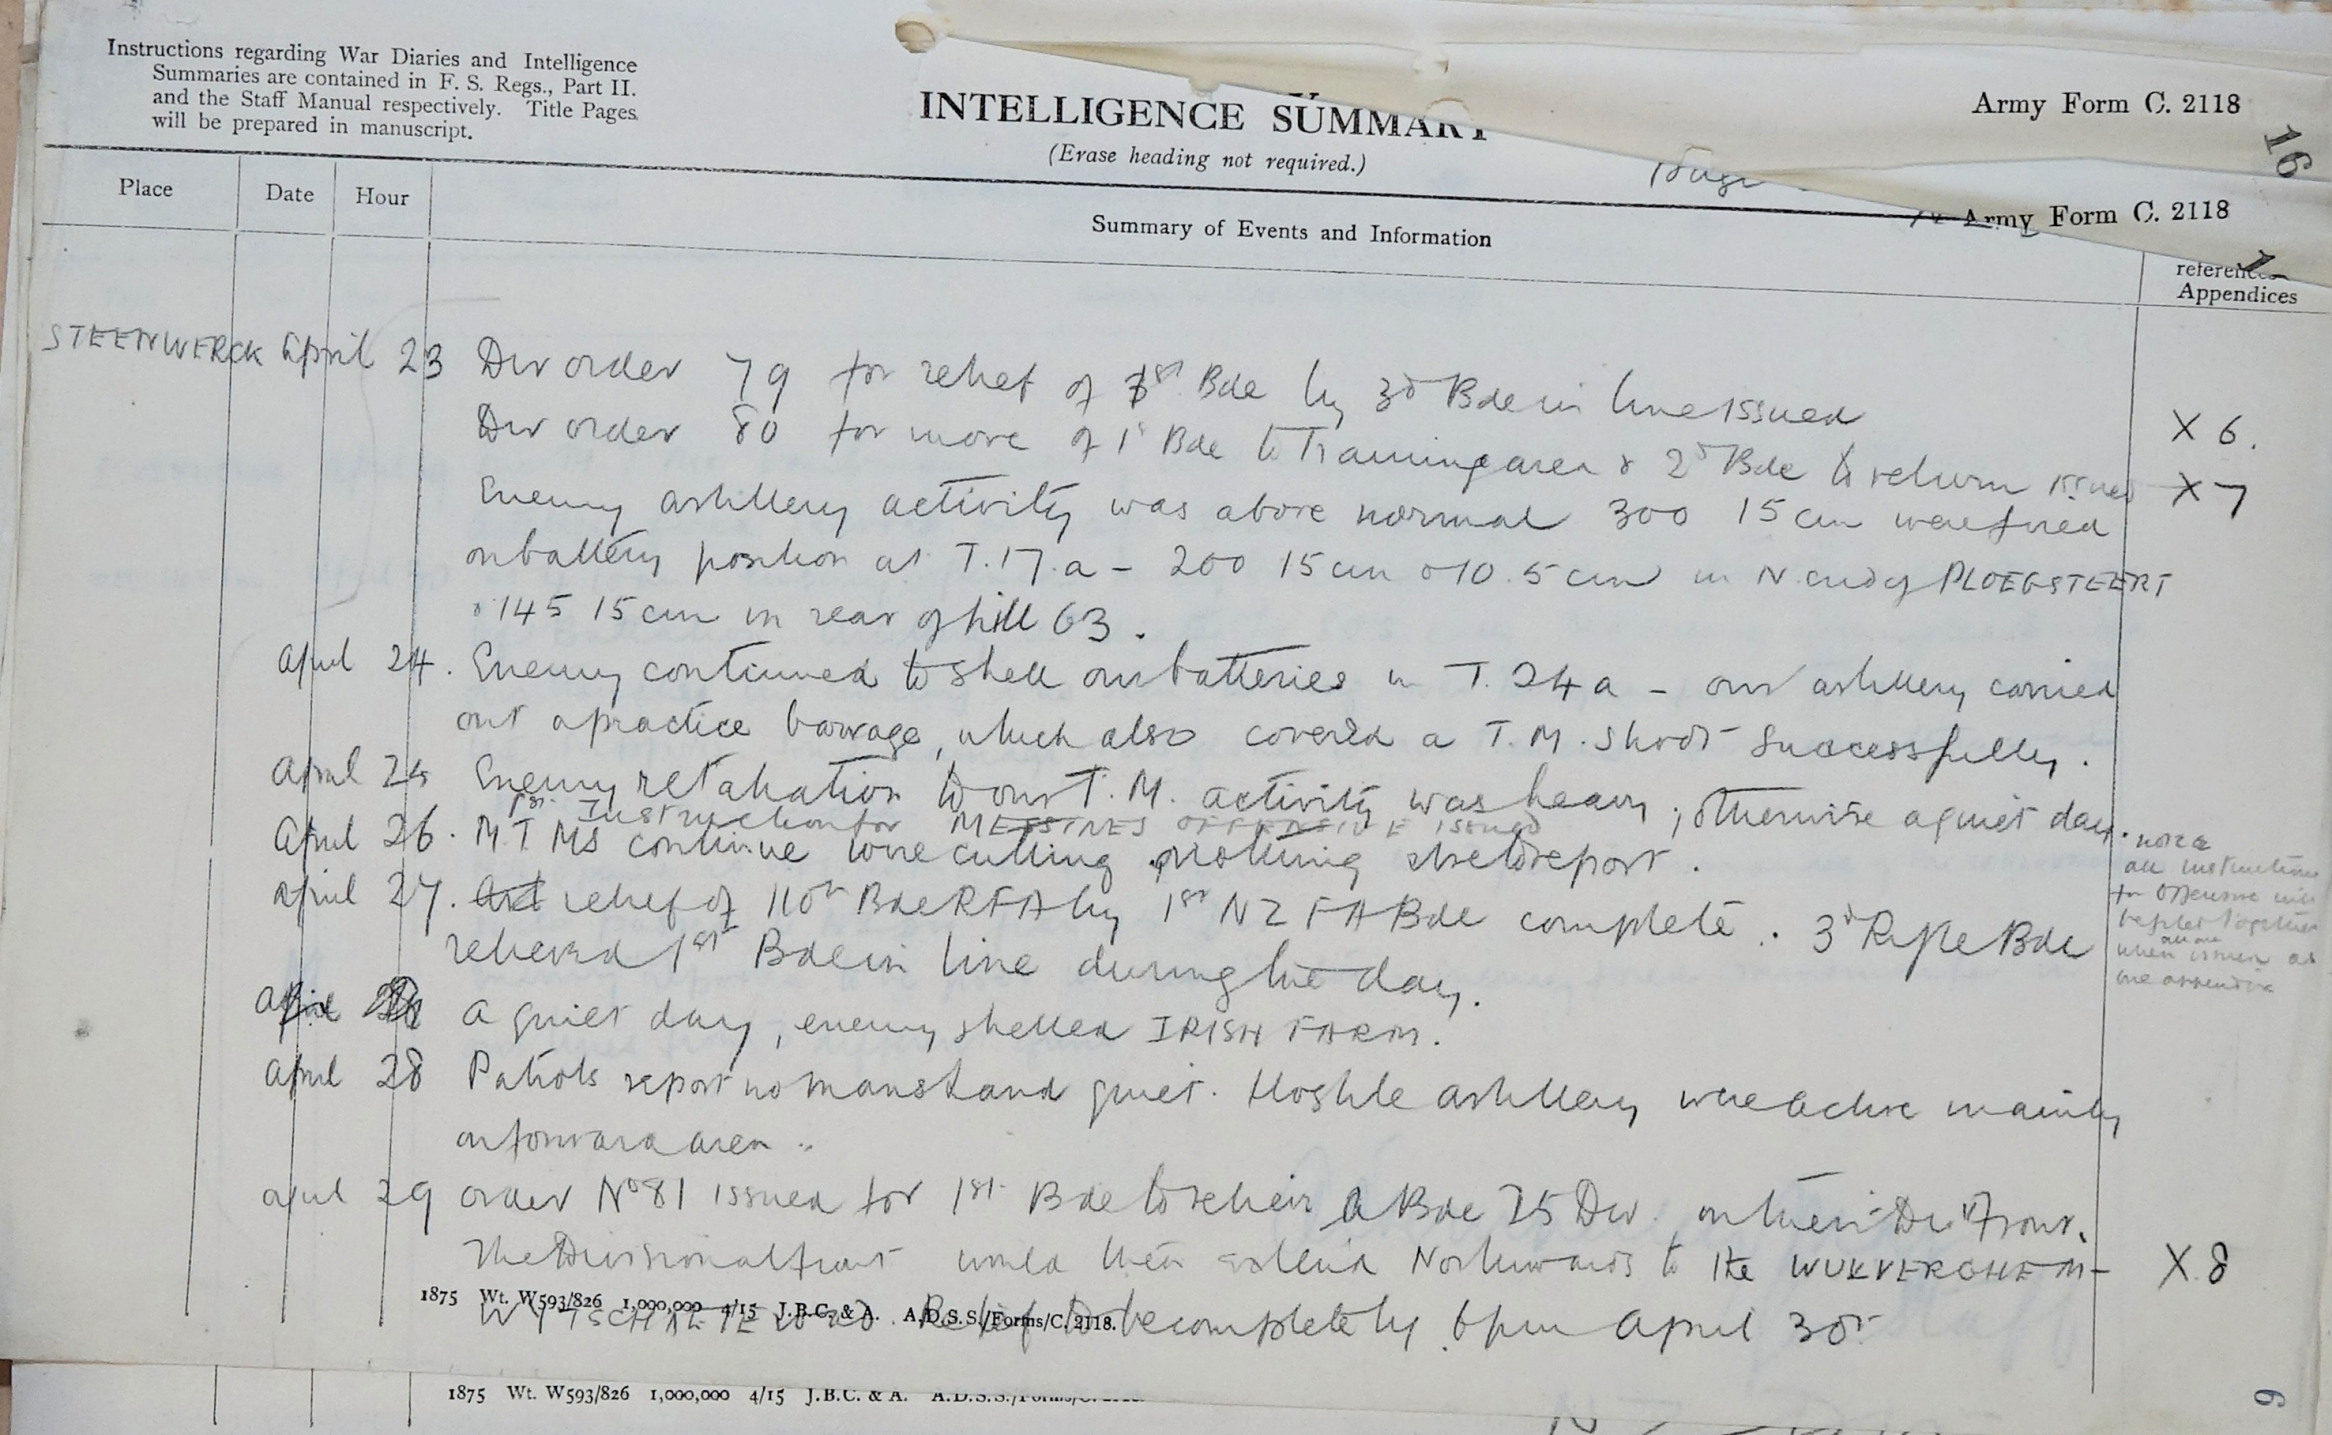 Instructions regarding War Diaries and Intelligence
Summaries are contained in F. S. Regs., Part II.
and the Staff Manual respectively. Title Pages
will be prepared in manuscript.
INTELLIGENCE SUMMARY
(Erase heading not required.)
Army Form C. 2118
16
Army Form C. 2118
1
Place Date Hour
Summary of Events and Information
references
Appendices
STEENWERCK April 23 Div order 79 for relief of 1st Bde by 3d Bde in line issued X 6.
Div order 80 for move of 1st Bde to Training area & 2d Bde to return issued X 7
Enemy artillery activity was above normal 300 15 cm were fired
on battery position at T.17.a – 200 15 cm & 10.5 cm in N. end of PLOEGSTEERT
& 145 15 cm in rear of hill 63.
April 24. Enemy continued to shell our batteries in T. 24 a – our artillery carried
out a practice barrage, which also covered a T.M. shoot successfully.
April 25 Enemy retaliation to our T.M. activity was heavy; otherwise a quiet day.
1st Instruction for MESSINES OFFENSIVE issued
April 26. M T Ms continue wire cutting. Nothing else to report.
Note
all instructions
for Offensive will
be filed together
when all are issued as
one appendix
April 27. relief of 110th Bde RFA by 1st NZ FA Bde complete. 3d Rifle Bde
relieved 1st Bde in line during the day.
A quiet day, enemy shelled IRISH FARM.
April 28 Patrols report no mans land quiet. Hostile artillery were active mainly
on forward area.
April 29 order No 81 issued for 1st Bde to relieve a Bde 25 Div. on their Div front.
The Divisional front would then extend Northwards to the WULVERGHEM– X.8
WYTSCHAETE road. Relief to be complete by 6 pm April 30th
1875 Wt. W593/826 1,000,000 4/15 J.B.C. & A. A.D.S.S./Forms/C. 2118.
1875 Wt. W593/826 1,000,000 4/15 J.B.C. & A. A.D.S.S./Forms/C. 2118.
6